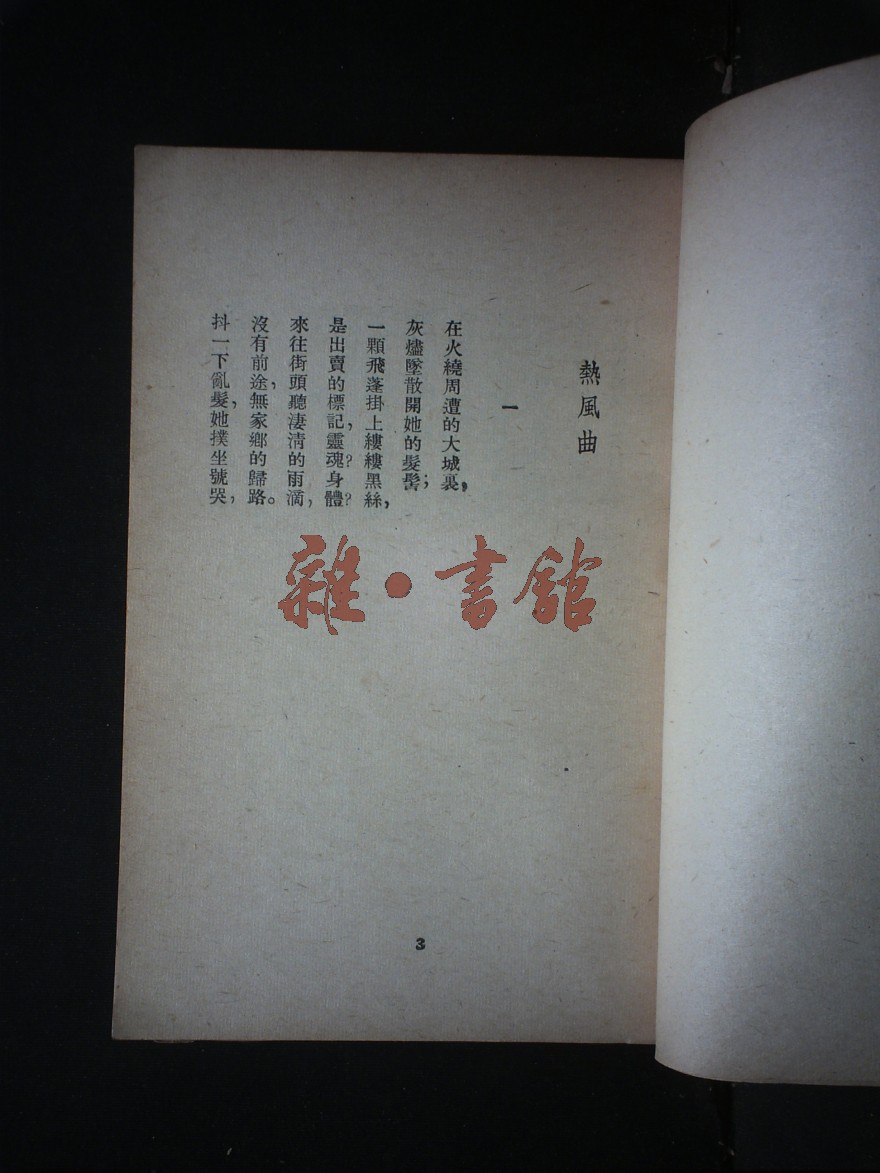 熱風曲
一
在火繞周遭的大城裏，
灰燼墜散開她的髮髻；
一顆飛蓬掛上縷縷黑絲，
是出賣的標記，靈魂？身體？
來往街頭聽淒清的雨滴，
沒有前途，無家鄉的歸路。
抖一下亂髮，她撲坐號哭，
雜·書館
3